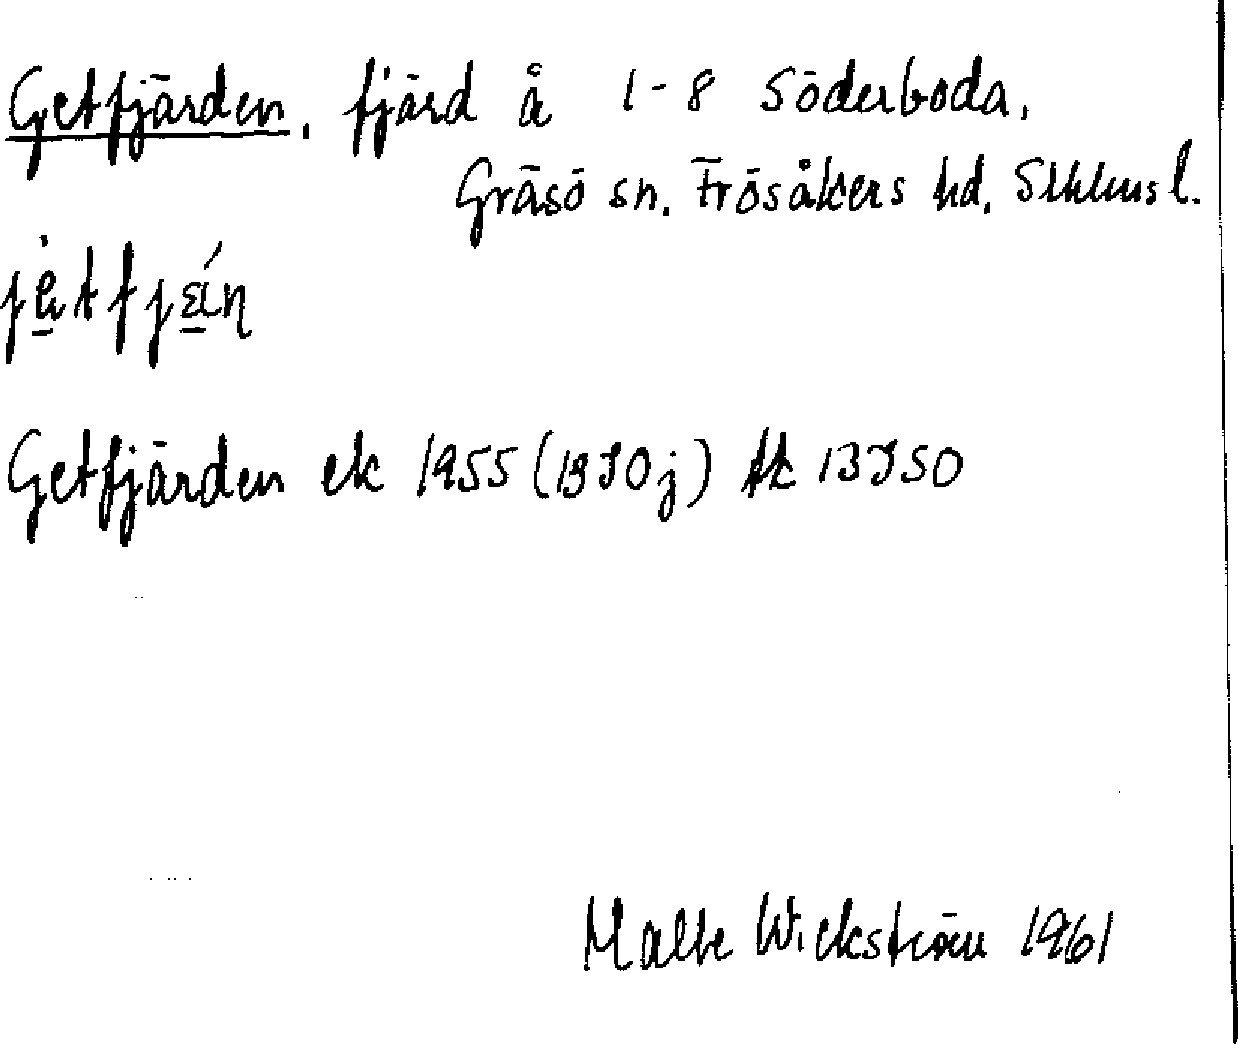 Getfjärden, fjärd å 1-8 Söderboda,
Gräsö sn. Frösåkers hd. Sthlms l.
Getfjärden ek 1955 (13J0j) fk 13J50
Malte Wickström 1961